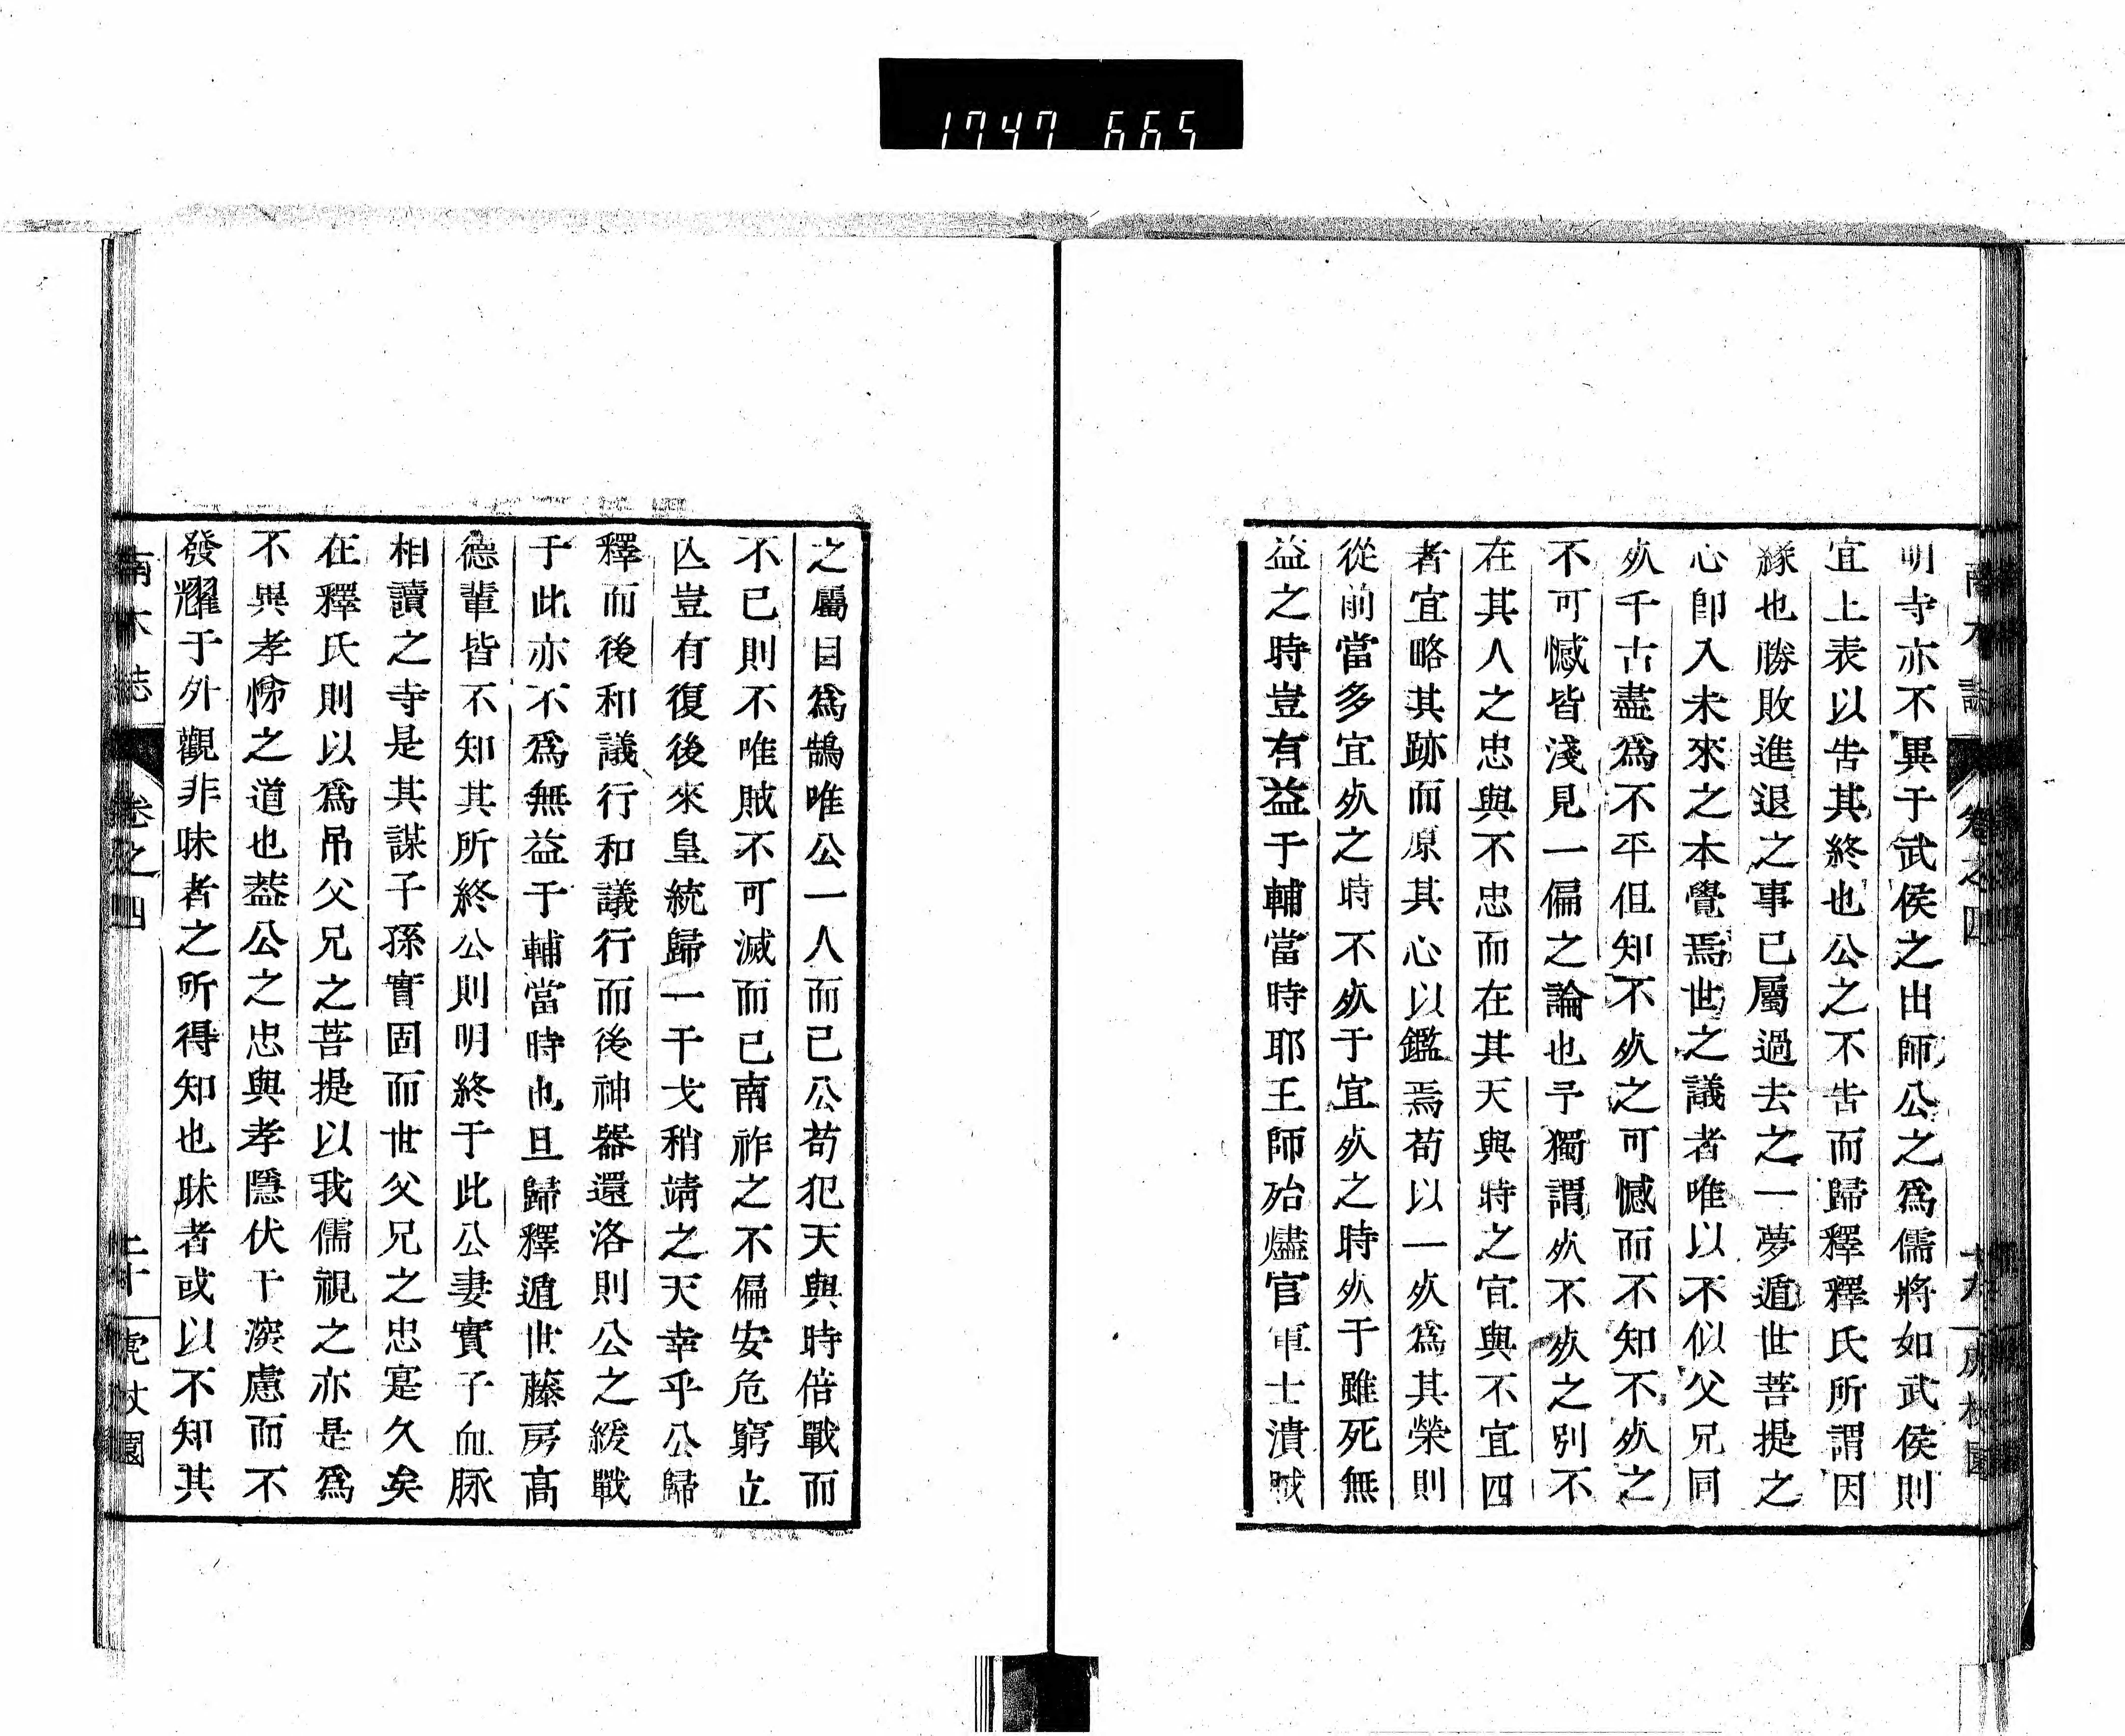 1747 665
明寺亦不異于武侯之出師公之爲儒將如武侯則
宜上表以告其終也公之不告而歸釋釋氏所謂因
緣也勝敗進退之事已屬過去之一夢遁世菩提之
心卽入未來之本覺焉世之議者唯以不似父兄同
㱙千古盡爲不平但知不㱙之可憾而不知不㱙之
不可憾皆淺見一偏之論也予獨謂㱙不㱙之別不
在其人之忠與不忠而在其天與時之宜與不宜四
者宜略其跡而原其心以鑑焉苟以一㱙爲其榮則
從前當多宜㱙之時不㱙于宜㱙之時㱙于雖死無
益之時豈有益于輔當時耶王師殆燼官軍士潰賊
之屬目爲鵠唯公一人而已公苟犯天與時倍戰而
不已則不唯賊不可滅而已南祚之不偏安危窮立
亾豈有復後來皇統歸一干戈稍靖之天幸乎公歸
釋而後和議行和議行而後神器還洛則公之緩戰
于此亦不爲無益于輔當時也且歸釋遁世藤房高
德輩皆不知其所終公則明終于此公妻實子血脉
相讀之寺是其謀子孫實固而世父兄之忠寔久矣
在釋氏則以爲吊父兄之菩提以我儒視之亦是爲
不與孝悌之道也葢公之忠與孝隱伏于深慮而不
發耀于外觀非昧者之所得知也昧者或以不知其
南木誌 卷之四 二十 虎杖園